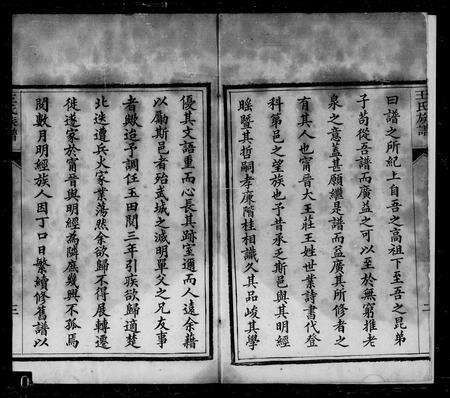 王氏族譜
曰譜之所紀上自吾之高祖下至吾之昆弟
子苟從吾譜而廣益之可以至於無窮推老
泉之意蓋甚願繼是譜而益廣其所修者之
有其人也甯晉大王莊王姓世業詩書代登
科第邑之望族也予昔承乏斯邑與其明經
暨其哲嗣孝廉階桂相識久其品峻其學
二
優其文語重而心長其跡室邇而人遠余藉
以勵斯邑者殆武城之滅明單父之兄友事
者歟迨予調任玉田閱三年引疾欲歸適楚
北迭遭兵火家業蕩然余欲歸不得展轉遷
徙遂家於甯晉與明經為隣庶幾興不孤焉
閱數月明經族人因丁口日繁續修舊譜以
王氏族譜
三